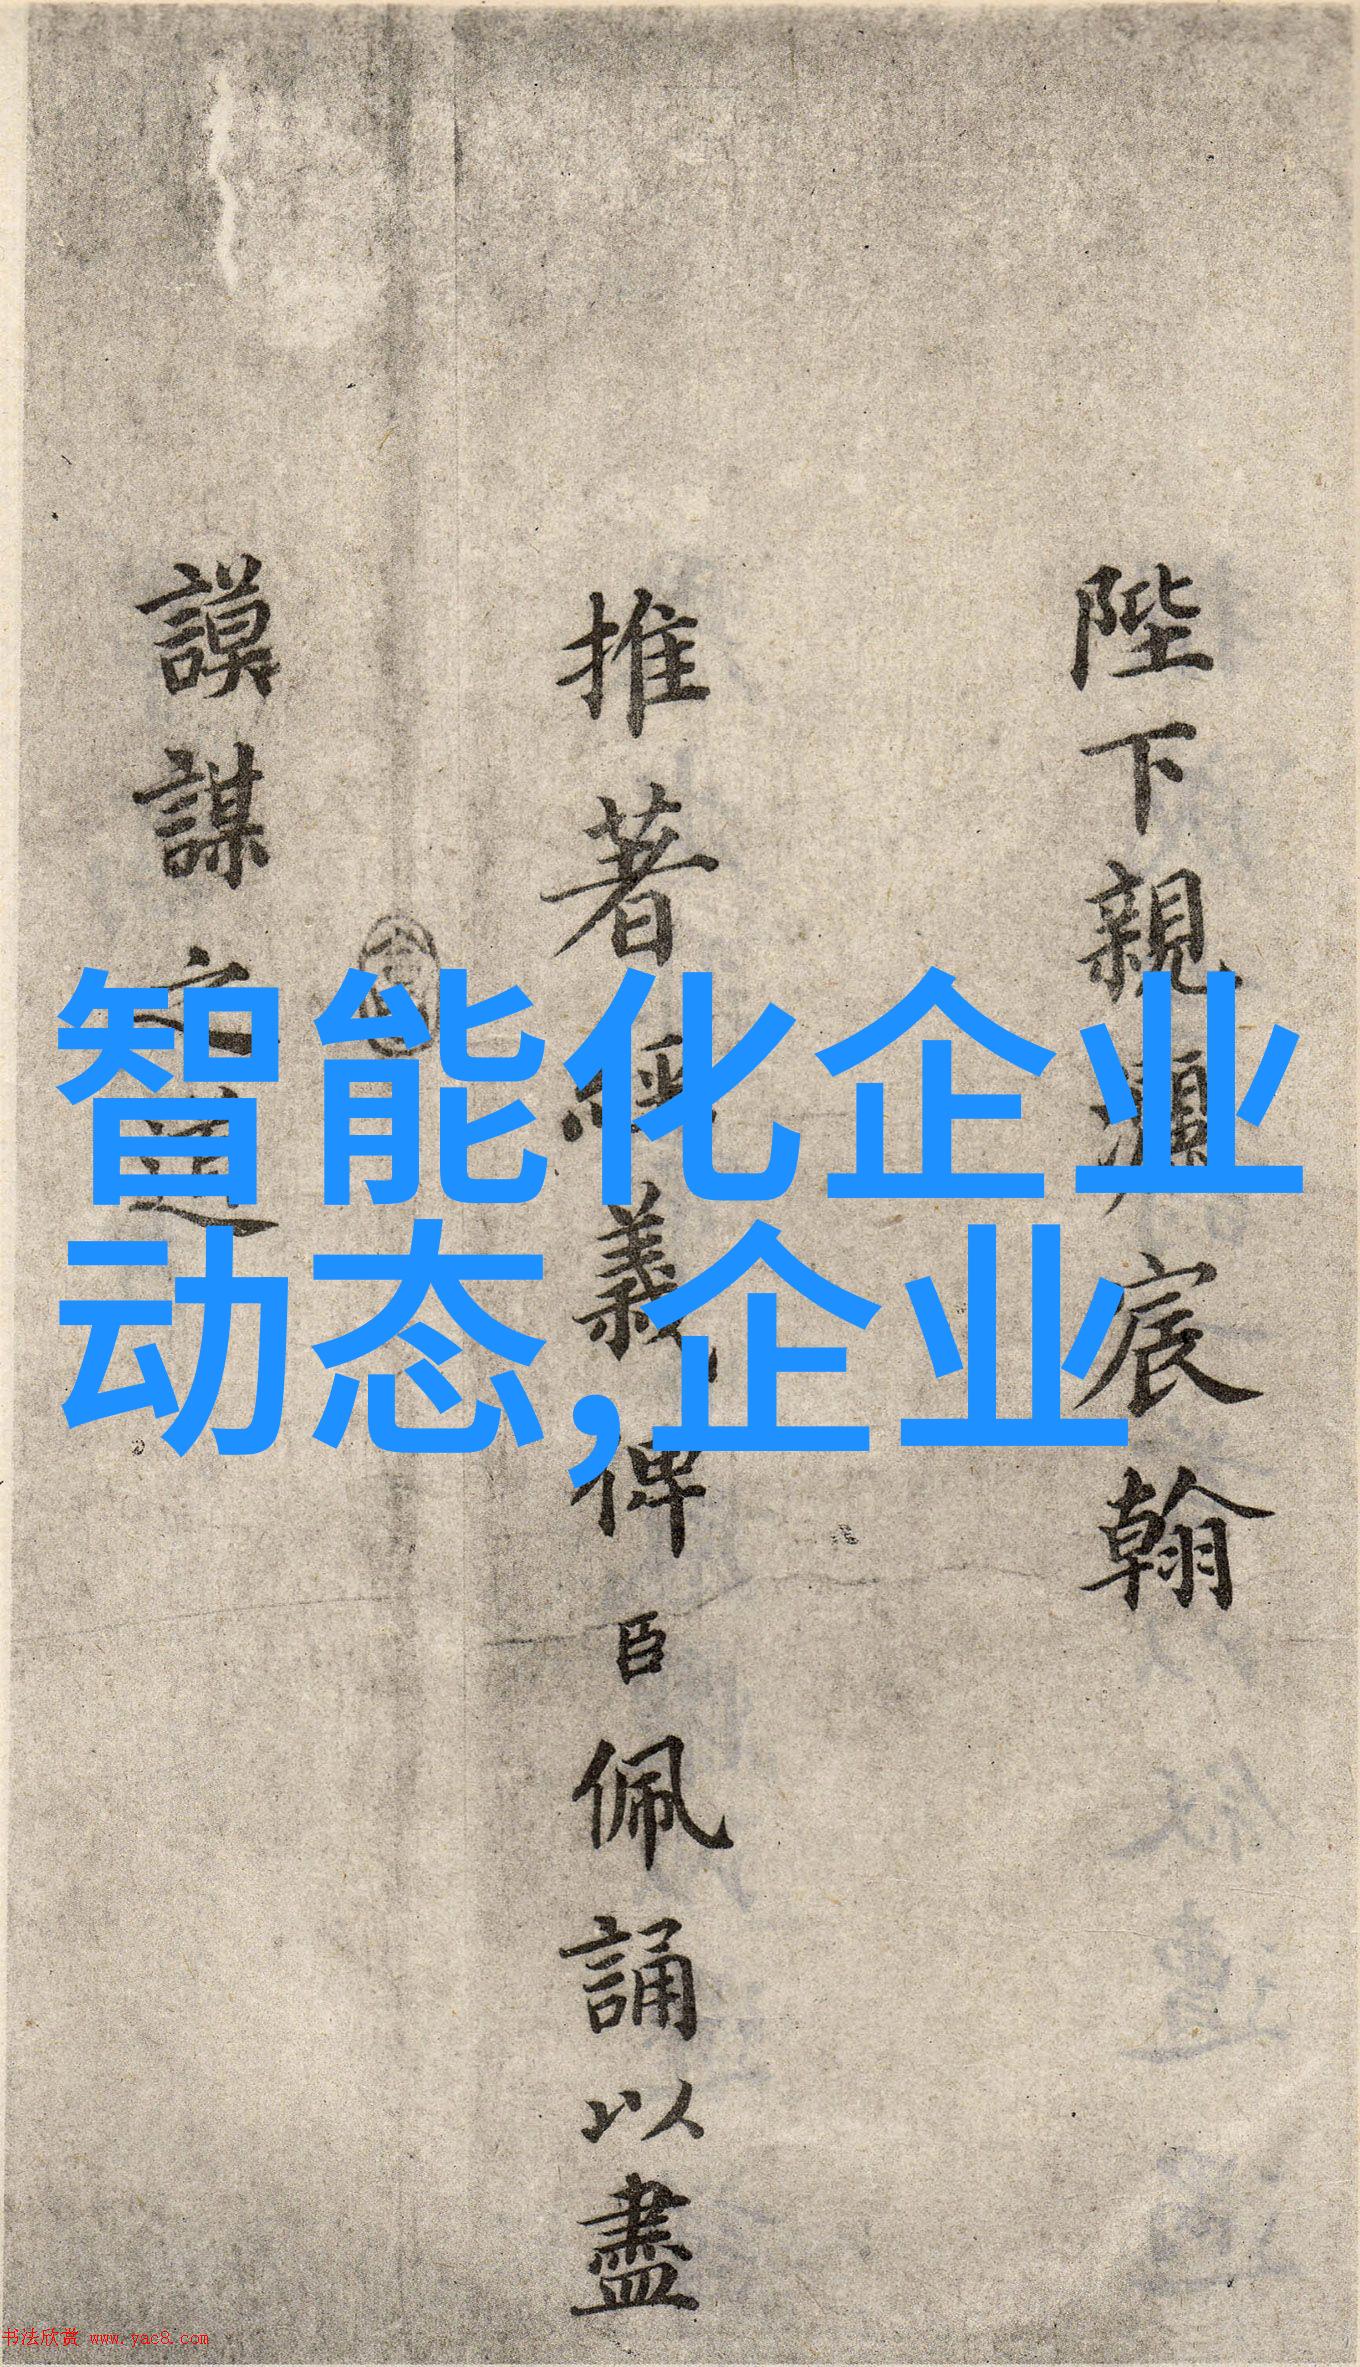 陛下親灑宸翰
推著經義俾臣佩誦以盡
謨謀之道
智能化企业
动态,企业
书法欣赏 www.yac8.com